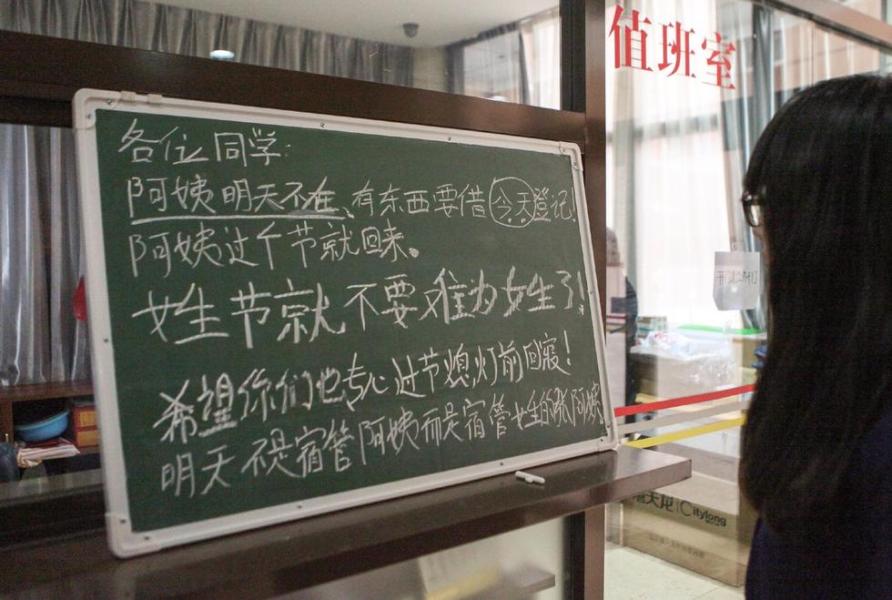 各位同学:
阿姨明天不在、有东西要借今天登记!
阿姨过个节就回来。
女生节就不要难为女生了!
希望你们也专心过节,熄灯前回寝!
明天不是宿管阿姨而是宿管女生的张阿姨
值班室
Citylong